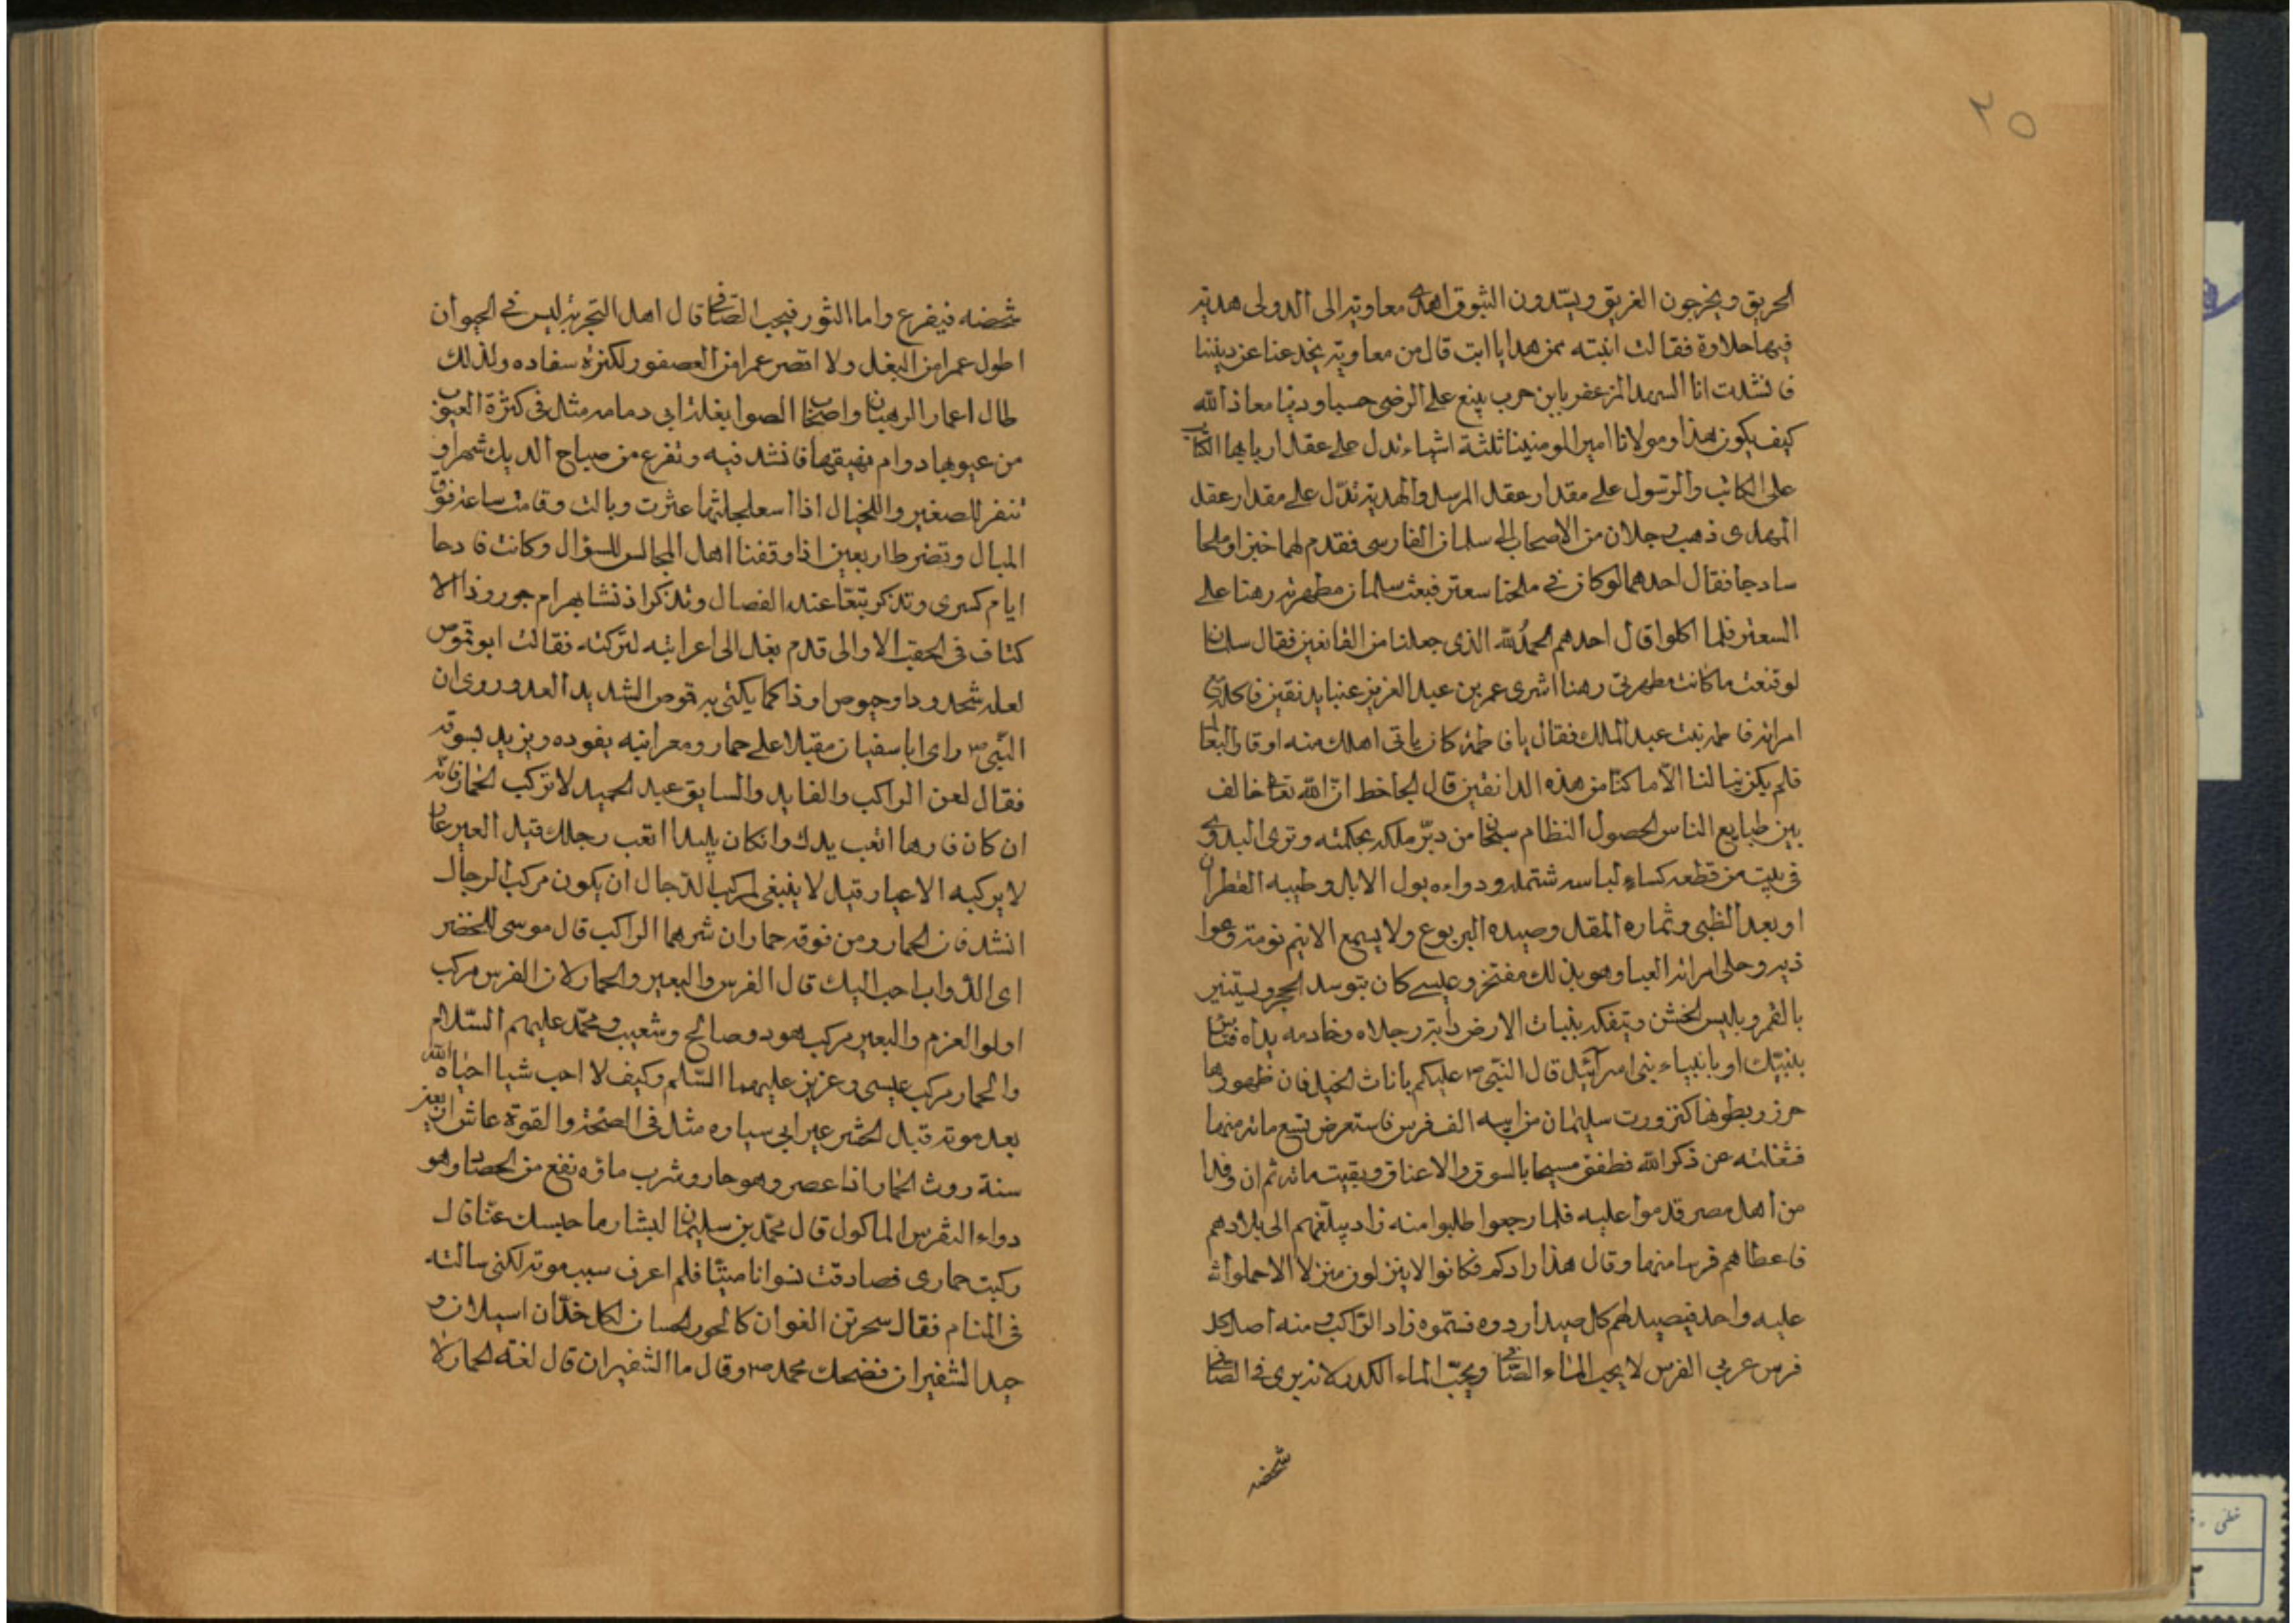 ٢٥
الحريق ويخرجون الغريق ويسّدون الثبوق اهدى معاوية الى الدولى هدية
فيها حلاوة فقالت ابنته ممن هدايا ابت قال من معاوية يخدعنا عن ديننا
فانشدت انا السهد المزعفر يابن حرب يبنع على الرضى حسبا ودنيا معاذ الله
كيف يكون هذا ومولانا امير المومنينا ثلثة اشياء تدل على عقل اربابها الكتاب
على الكاتب والرسول على مقدار عقل المرسل والهدية تدّل على مقدار عقل
المهدى ذهب رجلان من الاصحاب الى سلمان الفارسى فقدم لهما خبزا وملحا
سادجا فقال احدهما لوكان فى ملحنا سعتر فبعث سلمان مطهرته رهنا على
السعتر فلما اكلوا قال احدهم الحمد لله الذى جعلنا من القانعين فقال سلمان
لو قنعت ما كانت مطهرتى رهنا اشرى عمر بن عبد العزيز عنبا بدنقين فاكله مع
امراته فاطمة بنت عبد الملك فقال يا فاطمة كان ياتى اهلك منه اوقار البغال
فلم يكن ينالنا الّا ما كنا من هذه الدانقين قال الجاحظ انّ الله تعالى خالف
بين طبايع الناس لحصول النظام سبحان من دبّر ملكه بحكمته وترى البدوى
فى بيت من قطعه كساء لباسه شتمله ودواءه بول الابل وطيبه القطران
او بعد الظبى وثماره المقل وصيده اليربوع ولا يسمع الانيم نومة وعوا
ذيب وحلى امراته العبا وهو بذلك مفتخر وعيسى كان يتوسد الحجر ويستنير
بالقمر ويلبس الخشن ويتفكر بنبات الارض دابته رجلاه وخادمه يداه فتاس
بنبيّك او بانبياء بنى اسرآئيل قال النبّى ص عليكم باناث الخيل فان ظهورها
حرز وبطونها كنز ورت سليمان من ابيه الف فرس فاستعرض تسع مائة منها
فشغلته عن ذكر الله فطفق مسحا بالسوق والاعناق وبقيت مائة ثم ان وفدا
من اهل مصر قدموا عليه فلما رجعوا طلبوا منه زاد يبلّغهم الى بلادهم
فاعطاهم فرسا منها وقال هذا زادكم فكانوا لا ينزلون منزلا الا حملوا
عليه واحد فيصيد لهم كل صيد اردوه فسمّوه زاد الراكب ومنه اصل كل
فرس عربى الفرس لا يحب الماء الصّافى ويحبّ الماء الكدر لانه يرى فى الصّافى
شخصه
شخصه فيفرع واما الثور فيحب الصّافى قال اهل التجربة ليس فى الحيوان
اطول عمرا من البغل ولا اقصر عمرا من العصفور لكثرة سفاده ولذلك
طال اعمار الرهبان واصحاب الصوا بغلة ابى دمامه مثل فى كثرة العيوب
من عيوبها دوام نهيقها فانشد فيه وتفرع من صياح الديك شهرا و
تنفر للصغير وللخيال اذا اسعلجلتها عثرت وبالت وقامت ساعة فوق
المبال وتضرطار بعين اذا وقفنا اهل المجالس للسؤال وكانت قادحا
ايام كسرى وتذكر تبّعا عند الفصال وتذكر اذ نشا بهرام جور وذا الا
كتاف فى الحقب الاوالى قدم بغل الى اعرابيه لتركبه فقالت ابو قموص
لعله شحدود او حيوص او ذا كما يكنى به قموص الشديد العدو روى ان
النبّى ص راى ابا سفيان مقبلا على حمار ومعرابنيه يقوده ويزيد يسوقه
فقال لعن الراكب والقايد والسايق عبد الحميد لا تركب الحمار فانّه
ان كان فارها اتعب يدك وانكان بليدا اتعب رجلك قيل العير عار
لا يركبه الا عيار قيل لا ينبغى لمركب الدّجال ان يكون مركب الرجال
انشد فان الحمار ومن فوقه حماران شرهما الراكب قال موسى للخضر
اى الدّواب احب اليك قال الفرس والبعير والحمار لان الفرس مركب
اولوا العزم والبعير مركب هود وصالح وشعيب ومحمّد عليهم السّلام
والحمار مركب عيسى وعزيز عليهما السّلم وكيف لا احب شيا احياه الله
بعد موته قبل الحشر عير ابى سياره مثل فى الصّحة والقوة عاش اربعين
سنة روث الحمار اذا عصر وهو حار وشرب ماؤه نفع من الحصاة وهو
دواء الضرس الماكول قال محمّد بن سليمان لبشار ما حبسك عنّا قال
ركبت حمارى فصادفت نسوانا ميتّا فلم اعرف سبب موته لكنى سالته
فى المنام فقال سحرتن الغوان كالحور الحسان لكل خدّان اسيلان و
جيد الشفيران فضحك محمد ص وقال ما الشفيران قال لغة الحمار لا